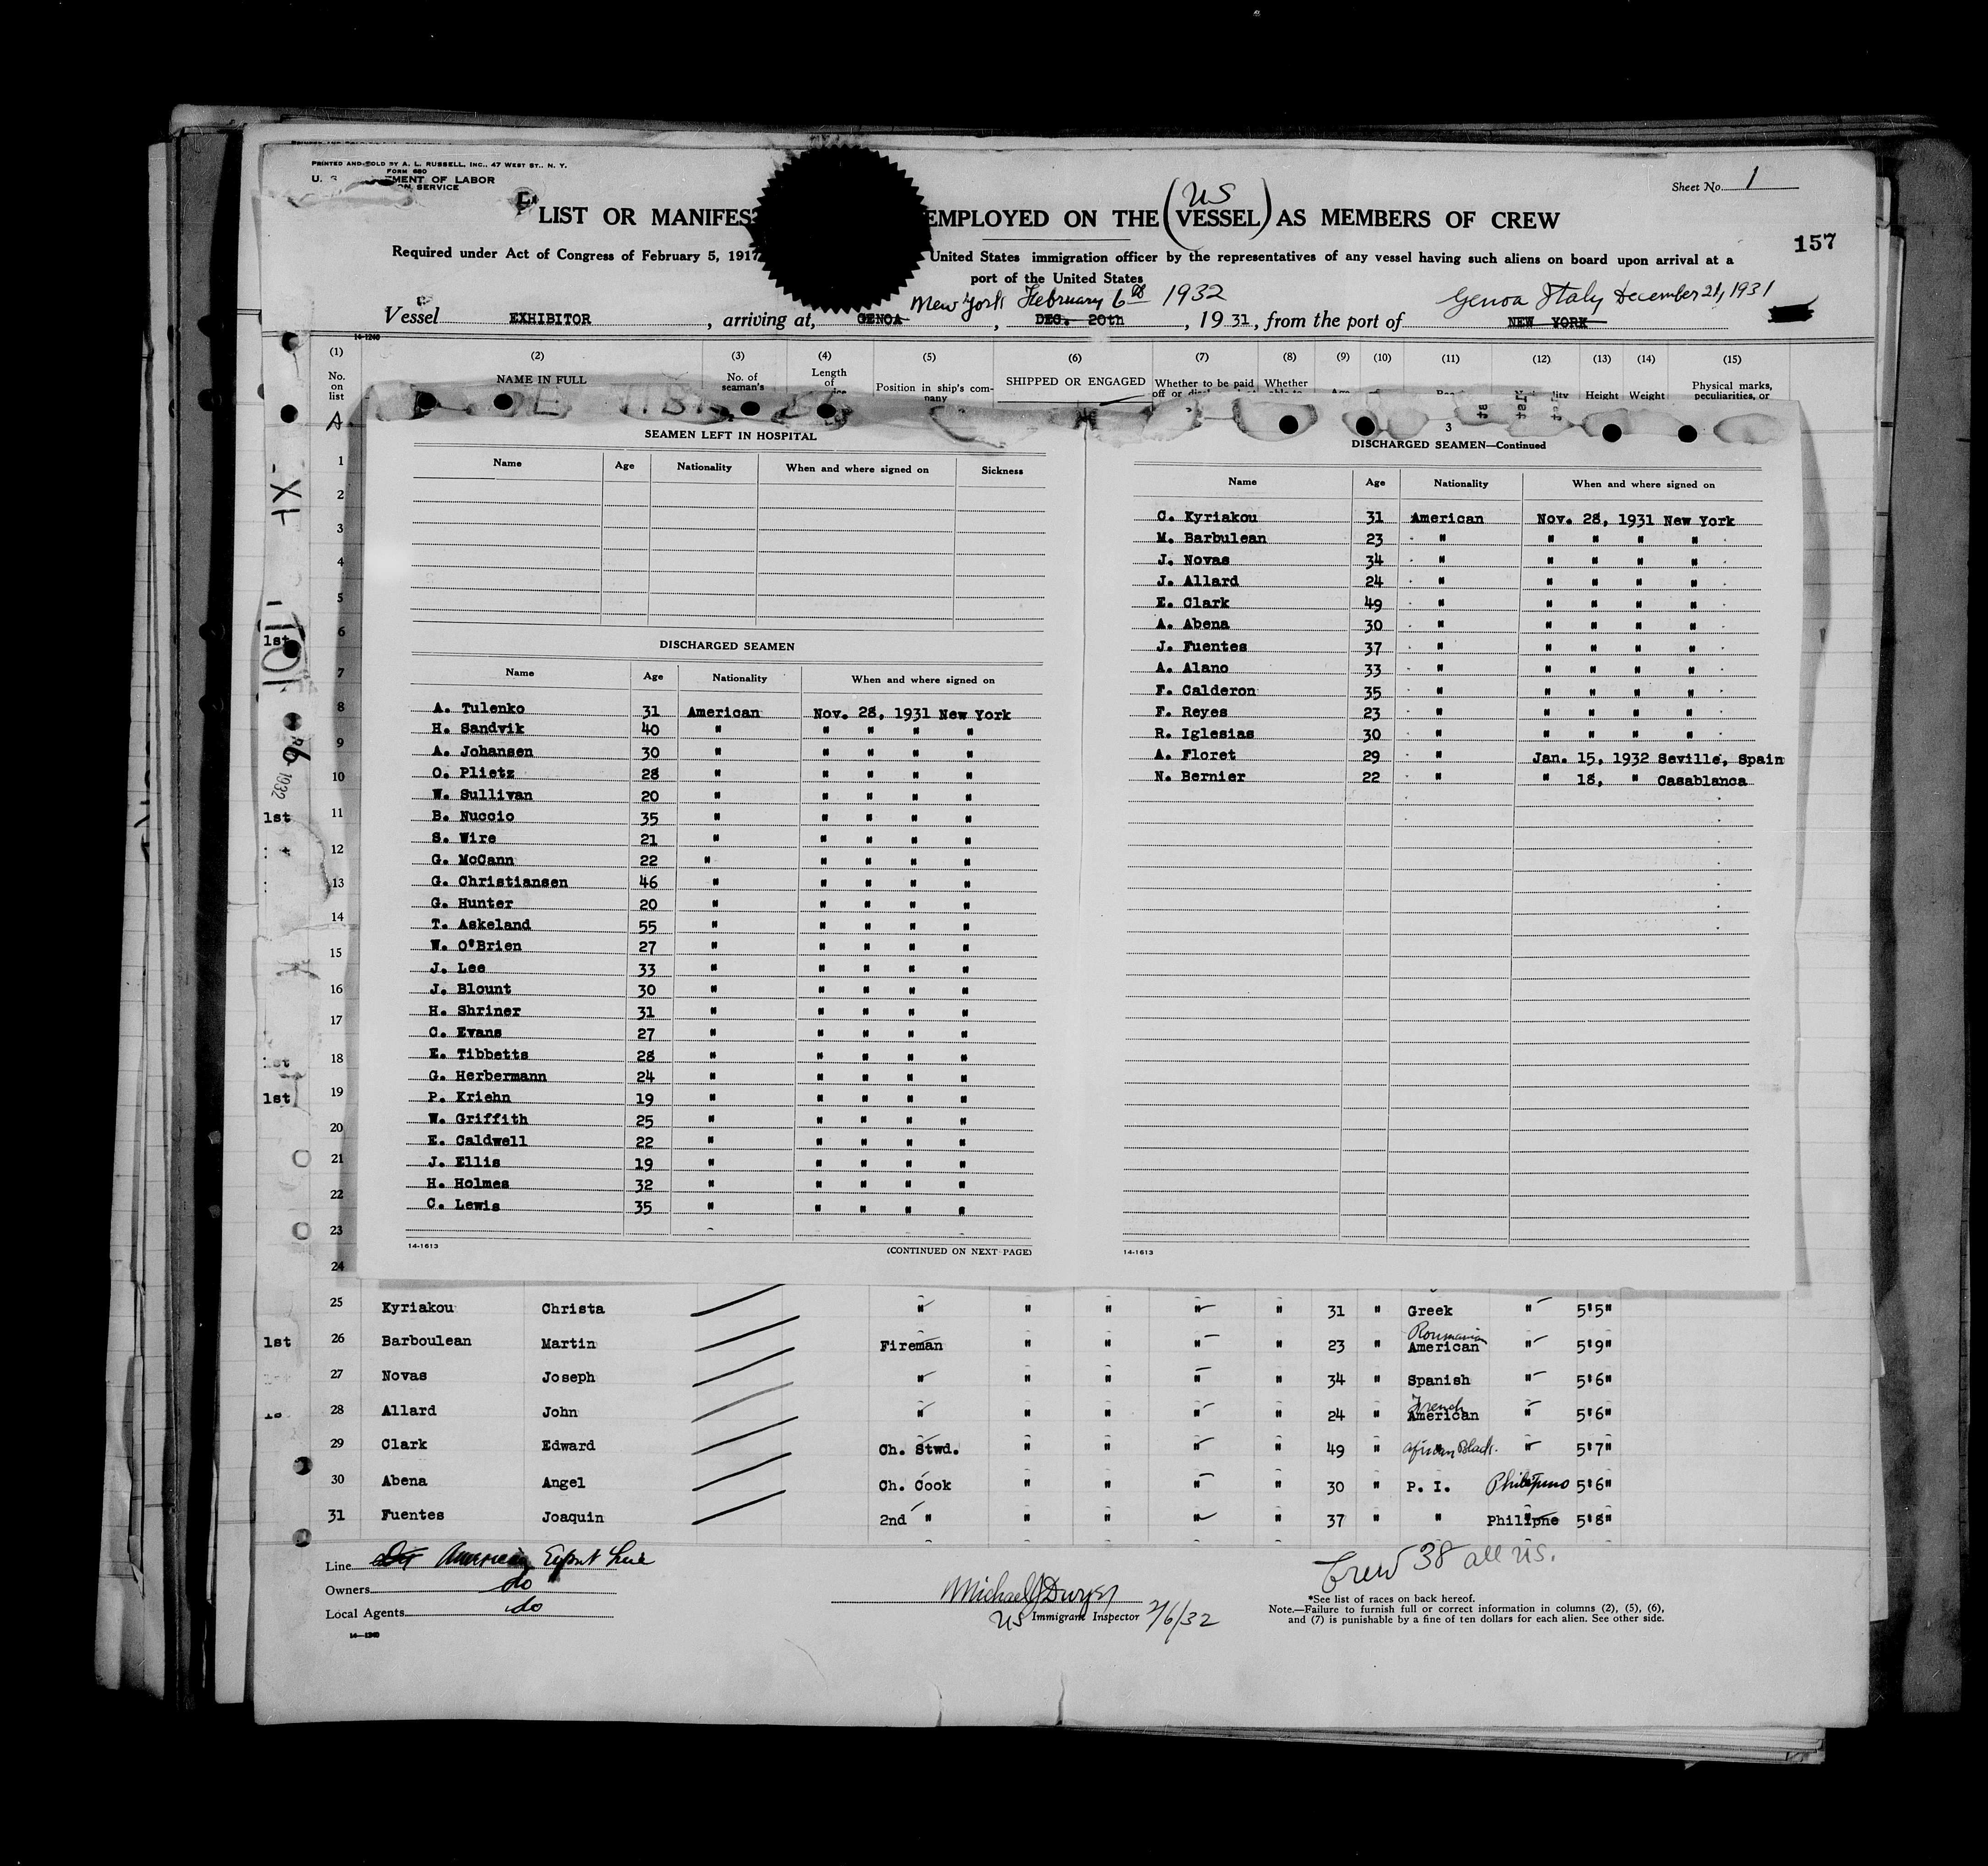 PRINTED AND SOLD BY A. L. RUSSELL, INC., 47 WEST ST., N. Y.
FORM 680
U. S. MENT OF LABOR
ON SERVICE
Sheet No. 1
LIST OR MANIFES EMPLOYED ON THE (VESSEL) AS MEMBERS OF CREW
US
157
Required under Act of Congress of February 5, 1917 United States immigration officer by the representatives of any vessel having such aliens on board upon arrival at a
port of the United States
New York February 6th 1932 Genoa Italy December 21, 1931
Vessel EXHIBITOR , arriving at, GENOA , DEC. 20th , 19 31, from the port of NEW YORK
14-1240
(1) (2) (3) (4) (5) (6) (7) (8) (9) (10) (11) (12) (13) (14) (15)
No. on list NAME IN FULL No. of seaman's Length of Position in ship's com- pany SHIPPED OR ENGAGED Whether to be paid off or Whether Height Weight Physical marks, peculiarities, or
SEAMEN LEFT IN HOSPITAL
Name Age Nationality When and where signed on Sickness
DISCHARGED SEAMEN
Name Age Nationality When and where signed on
A. Tulenko 31 American Nov. 28, 1931 New York
H. Sandvik 40 " " " " "
A. Johansen 30 " " " " "
O. Plietz 28 " " " " "
W. Sullivan 20 " " " " "
B. Nuccio 35 " " " " "
S. Wire 21 " " " " "
G. McCann 22 " " " " "
G. Christiansen 46 " " " " "
G. Hunter 20 " " " " "
T. Askeland 55 " " " " "
W. O'Brien 27 " " " " "
J. Lee 33 " " " " "
J. Blount 30 " " " " "
H. Shriner 31 " " " " "
C. Evans 27 " " " " "
E. Tibbetts 28 " " " " "
G. Herbermann 24 " " " " "
P. Kriehn 19 " " " " "
W. Griffith 25 " " " " "
E. Caldwell 22 " " " " "
J. Ellis 19 " " " " "
H. Holmes 32 " " " " "
C. Lewis 35 " " " " "
14-1613 (CONTINUED ON NEXT PAGE)
3
DISCHARGED SEAMEN—Continued
Name Age Nationality When and where signed on
C. Kyriakou 31 American Nov. 28, 1931 New York
M. Barbulean 23 " " " " "
J. Novas 34 " " " " "
J. Allard 24 " " " " "
E. Clark 49 " " " " "
A. Abena 30 " " " " "
J. Fuentes 37 " " " " "
A. Alano 33 " " " " "
F. Calderon 35 " " " " "
F. Reyes 23 " " " " "
R. Iglesias 30 " " " " "
A. Floret 29 " Jan. 15, 1932 Seville, Spain
N. Bernier 22 " " 18, " Casablanca
14-1613
1
2
3
4
5
1st 6
7
8
9
10
1st 11
12
13
14
15
16
17
1st 18
1st 19
20
21
22
23
24
1932
25 Kyriakou Christa " " " " " 31 " Greek " 5'5"
Roumanian
1st 26 Barboulean Martin Fireman " " " " 23 " American " 5'9"
27 Novas Joseph " " " " " 34 " Spanish " 5'6"
French
28 Allard John " " " " " 24 " American " 5'6"
29 Clark Edward Ch. Stwd. " " " " 49 " African Black. " 5'7"
30 Abena Angel Ch. Cook " " " " 30 " P. I. Philipino 5'6"
31 Fuentes Joaquin 2nd " " " " " 37 " " Philipne 5'8"
Line American Export Line
Owners do
Local Agents do
14—1240
Michael J Dwyer
US Immigrant Inspector 2/6/32
Crew 38 all US.
*See list of races on back hereof.
Note.—Failure to furnish full or correct information in columns (2), (5), (6),
and (7) is punishable by a fine of ten dollars for each alien. See other side.